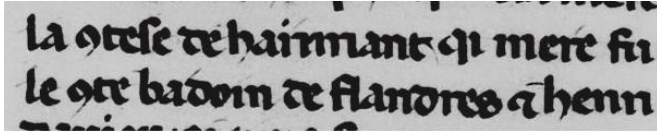 la ꝯtesse de hainnaut qi mere fu
le ꝯte badoin de flandres ⁊ henri